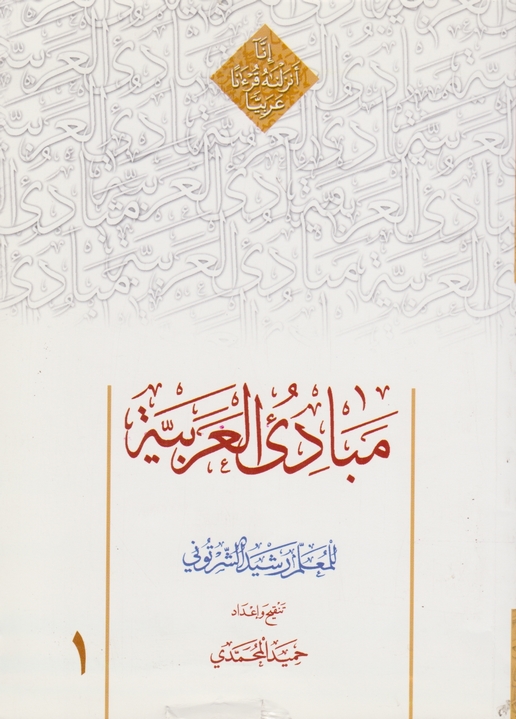 إِنَّآ
أَنزَلْنَٰهُ قُرْءَٰنًا
عَرَبِيًّا
مَبَادِئُ الْعَرَبِيَّة
للمعلّم رشيد الشّرتوني
تنقيح و إعداد
حميد المحمّدي
١